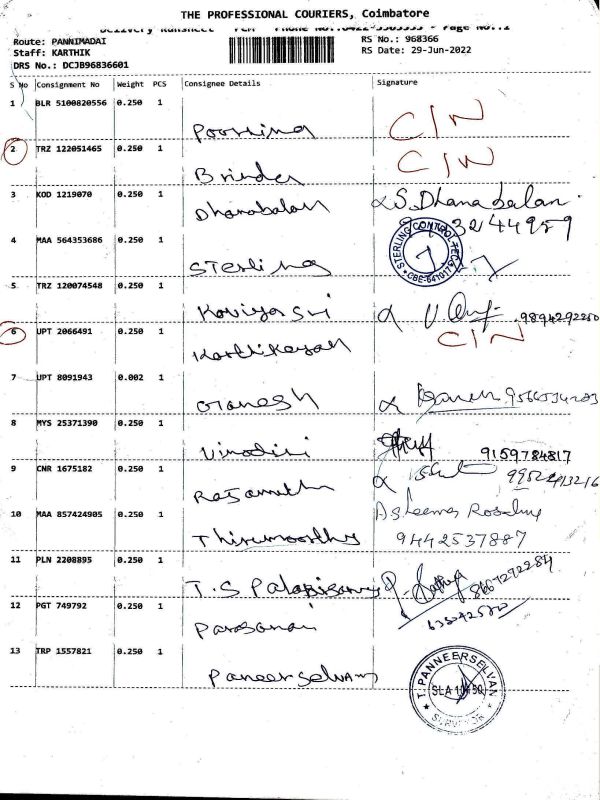 THE PROFESSIONAL COURIERS, Coimbatore
Delivery Runsheet PCM Phone No.:0422-3505555 - Page No.:1
Route: PANNIMADAI RS No.: 968366
Staff: KARTHIK RS Date: 29-Jun-2022
DRS No.: DCJB96836601
S No Consignment No Weight PCS Consignee Details Signature
1 BLR 5100820556 0.250 1
Poornima C/N
2 TRZ 122051465 0.250 1 C/N
Brinda
3 KOD 1219070 0.250 1
Dhanabalan S.Dhanabalan
3244959
4 MAA 564353686 0.250 1 STERLING CONTROL TECH CBE-641017
Sterling
5 TRZ 120074548 0.250 1
Kaviya Sri V. 9894292250
6 UPT 2066491 0.250 1 C/N
Karthikeyan
7 UPT 8091943 0.002 1
Ganesh
8 MYS 25371390 0.250 1
Vinodini 9159784817
9 CNR 1675182 0.250 1
Rajamuthu
10 MAA 857424905 0.250 1 Rosaline
Thirumoorthy 9442537887
11 PLN 2208895 0.250 1
T.S Palanisamy 8667272284
12 PGT 749792 0.250 1
13 TRP 1557821 0.250 1
Paneerselvam T. PANNEERSELVAN
SURVEYOR